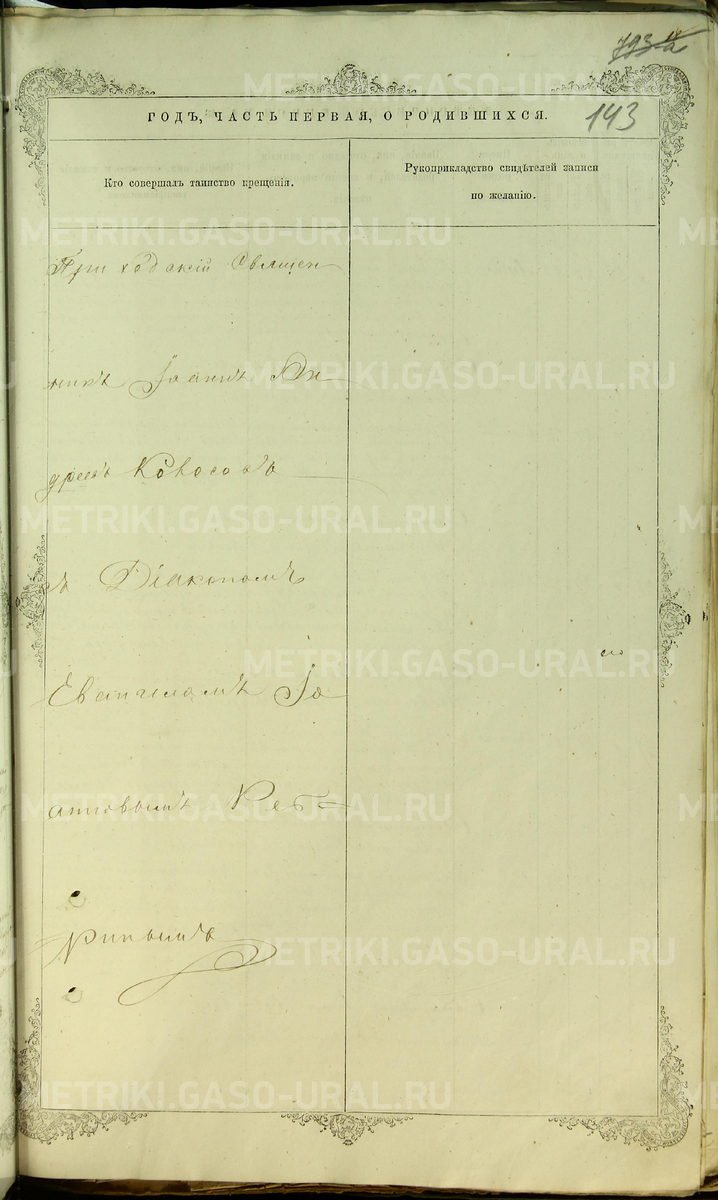 143
ГОДЪ, ЧАСТЬ ПЕРВАЯ, О РОДИВШИХСЯ.
Кто совершалъ таинство крещенія.
Рукоприкладство свидѣтелей записи
по желанію.
Приходскій Священ
никъ Іоаннъ Ан
дреевъ
съ Діакономъ
Іо
анновымъ
METRIKI.GASO-URAL.RU